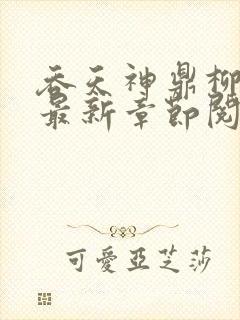 吞天神鼎柳
最新章节阅
可愛亞芝莎